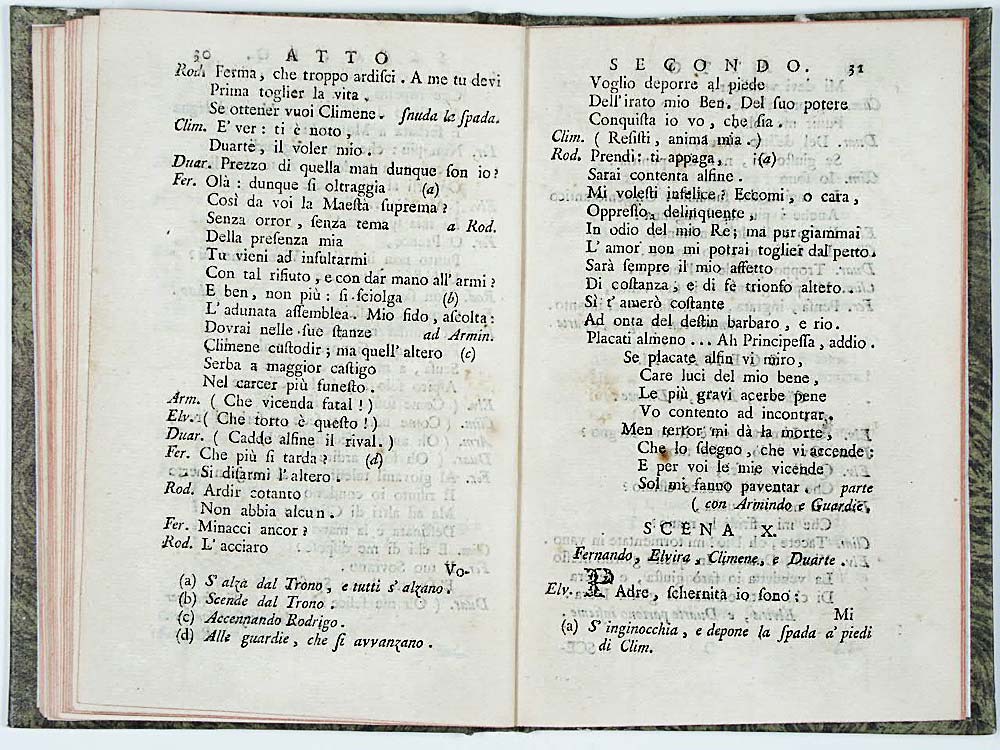 30 ATTO
Rod. Ferma, che troppo ardiſci. A me tu devi
Prima toglier la vita.
Se ottener vuoi Climene. ſnuda la ſpada.
Clim. E' ver: ti è noto,
Duarte, il voler mio.
Duar. Prezzo di quella man dunque ſon io?
Fer. Olà: dunque ſi oltraggia (a)
Così da voi la Maeſtà ſuprema?
Senza orror, ſenza tema a Rod.
Della preſenza mia
Tu vieni ad inſultarmi
Con tal rifiuto, e con dar mano all' armi?
E ben, non più: ſi ſciolga (b)
L' adunata aſſemblea. Mio fido, aſcolta:
Dovrai nelle ſue ſtanze ad Armin.
Climene cuſtodir; ma quell' altero (c)
Serba a maggior caſtigo
Nel carcer più funeſto.
Arm. ( Che vicenda fatal! )
Elv. ( Che torto è queſto! )
Duar. ( Cadde alfine il rival. )
Fer. Che più ſi tarda? (d)
Si diſarmi l' altero.
Rod. Ardir cotanto
Non abbia alcun.
Fer. Minacci ancor?
Rod. L' acciaro
Vo-
(a) S' alza dal Trono, e tutti s' alzano.
(b) Scende dal Trono.
(c) Accennando Rodrigo.
(d) Alle guardie, che ſi avvanzano.
SECONDO. 31
Voglio deporre al piede
Dell' irato mio Ben. Del ſuo potere
Conquiſta io vo, che ſia.
Clim. ( Reſiſti, anima mia. )
Rod. Prendi: ti appaga, (a)
Sarai contenta alfine.
Mi voleſti infelice? Eccomi, o cara,
Oppreſſo, delinquente,
In odio del mio Re; ma pur giammai
L' amor non mi potrai toglier dal petto.
Sarà ſempre il mio affetto
Di coſtanza, e di fe trionfo altero.
Sì t' amerò coſtante
Ad onta del deſtin barbaro, e rio.
Placati almeno ... Ah Principeſſa, addio.
Se placate alfin vi miro,
Care luci del mio bene,
Le più gravi acerbe pene
Vo contento ad incontrar.
Men terror mi dà la morte,
Che lo ſdegno, che vi accende;
E per voi le mie vicende
Sol mi fanno paventar. parte
( con Armindo e Guardie.
SCENA X.
Fernando, Elvira, Climene, e Duarte.
Elv. PAdre, ſchernita io ſono:
Mi
(a) S' inginocchia, e depone la ſpada a' piedi
di Clim.